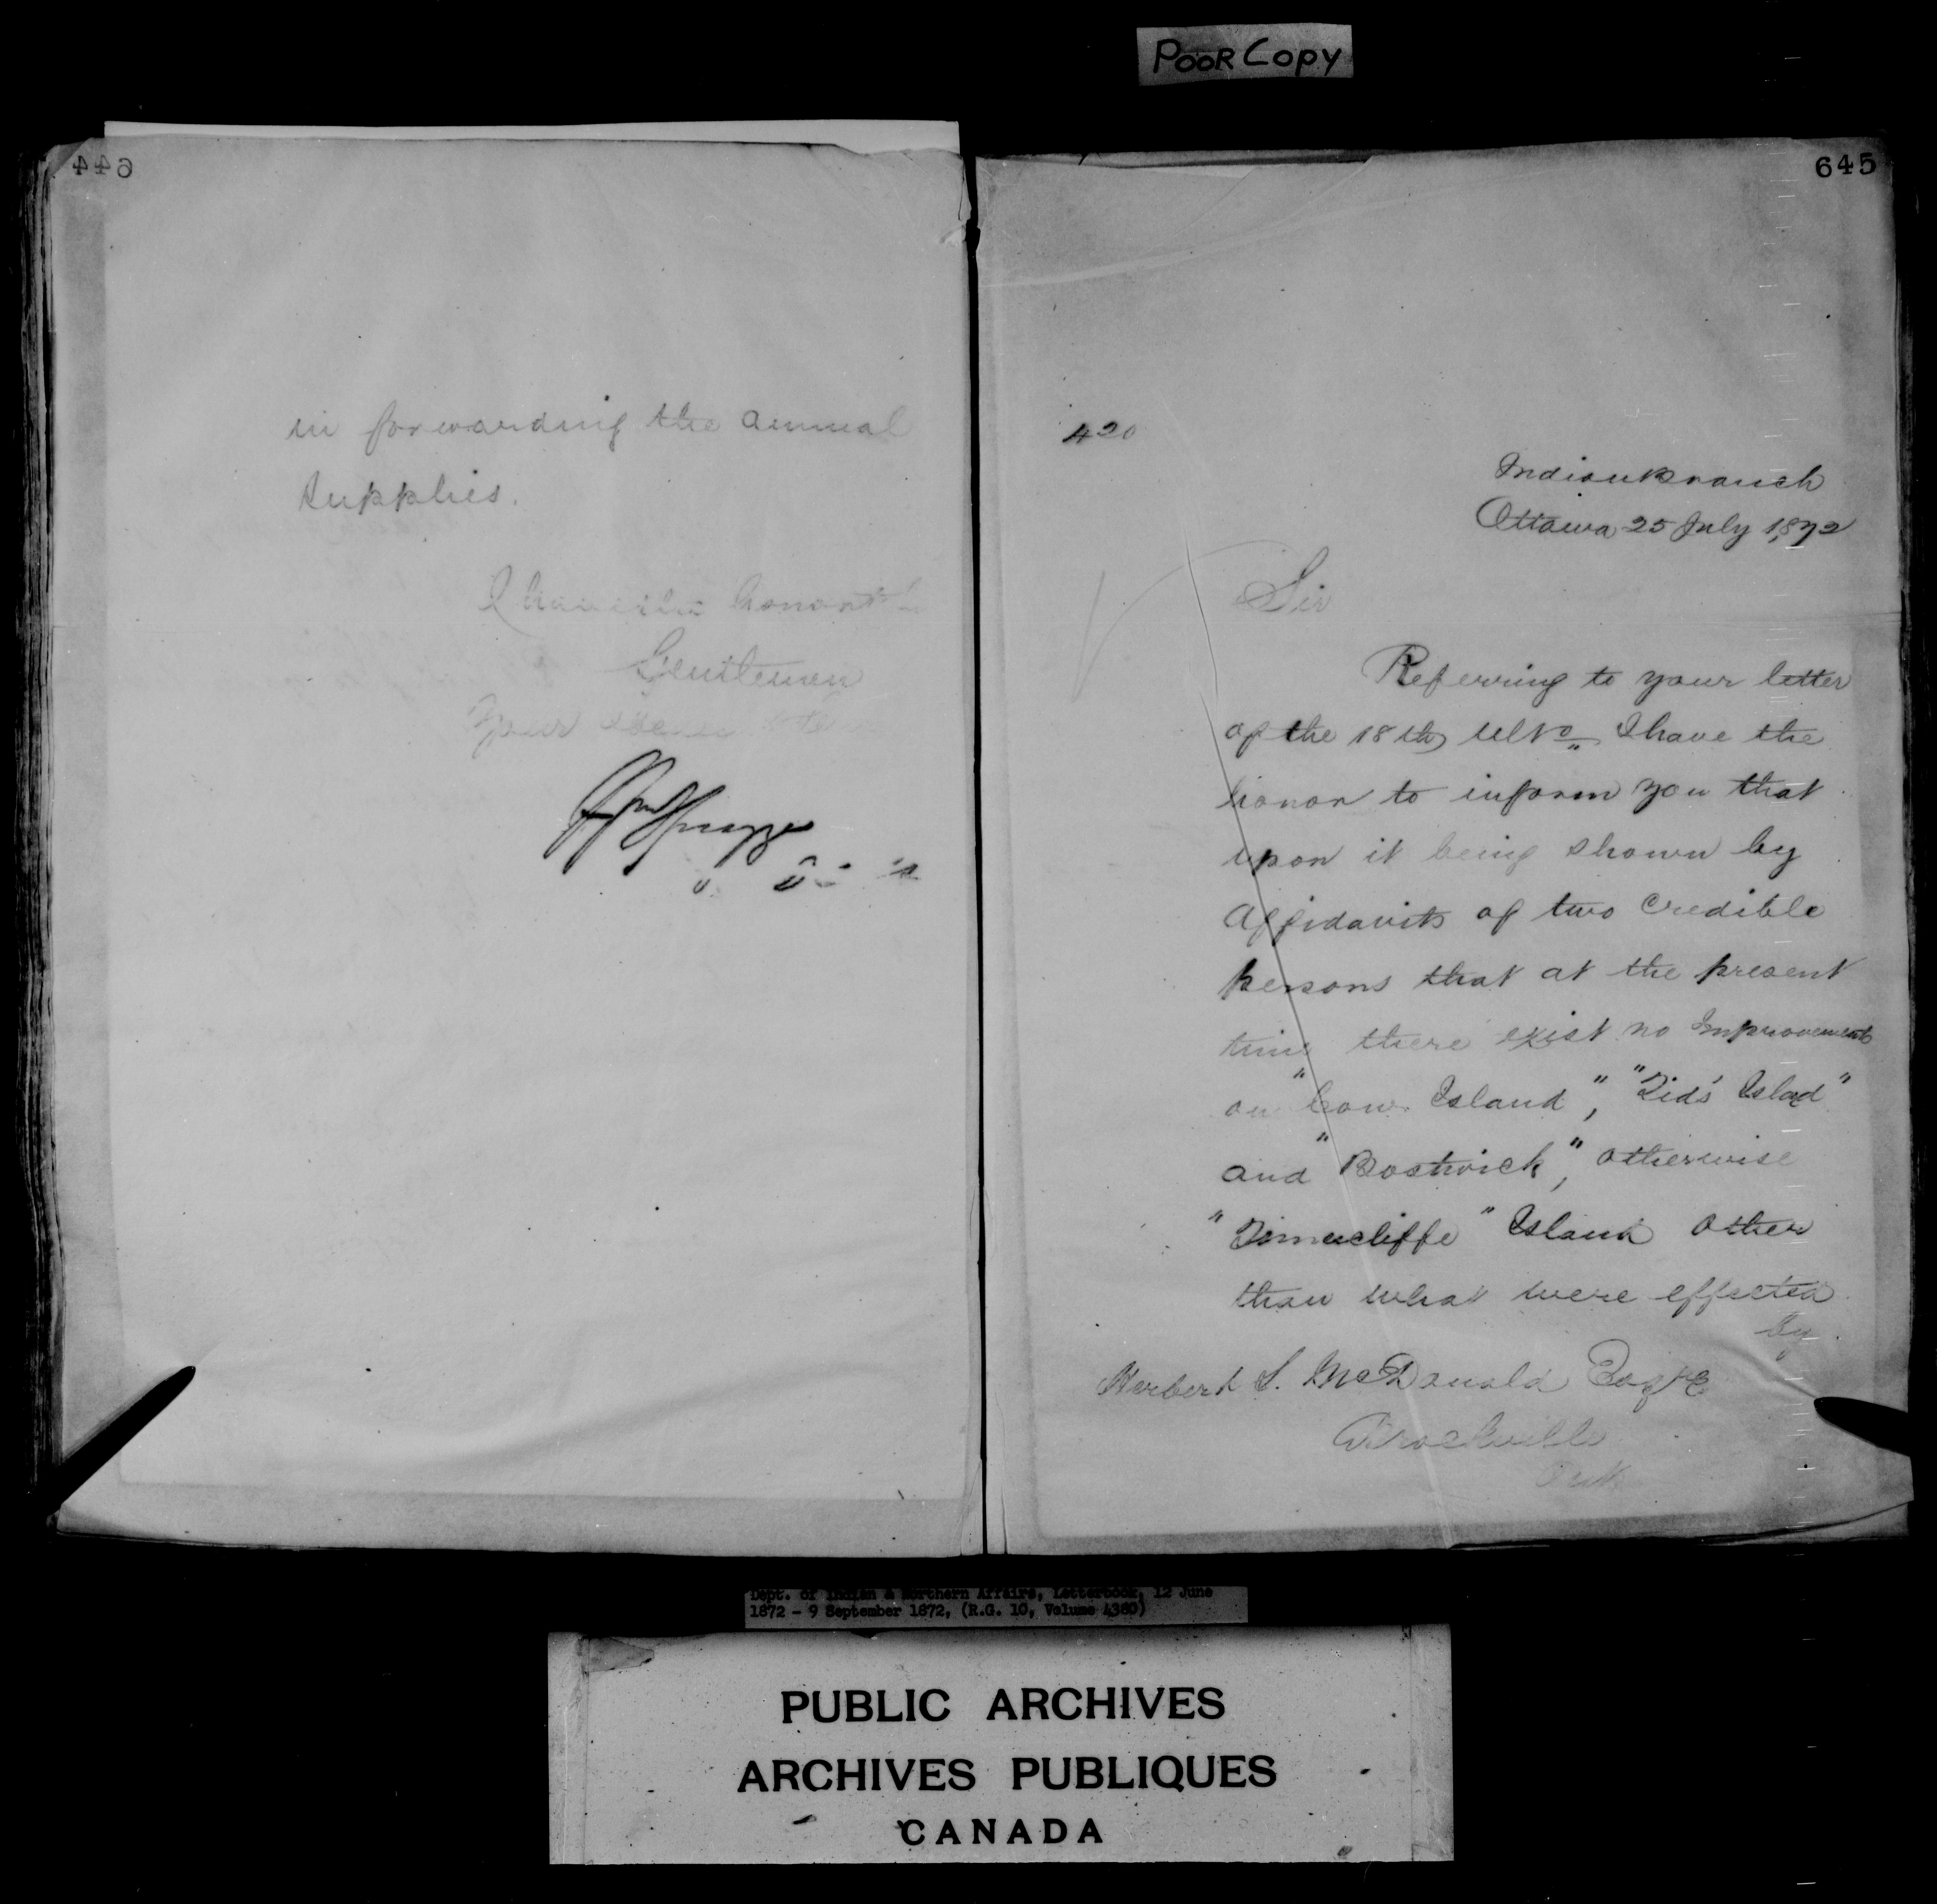 POOR COPY
644
in forwarding the annual
supplies.
I have the honor
Gentlemen
Your
645
420
Indian Branch
Ottawa 25 July 1872
Sir
Referring to your letter
of the 18th ulto I have the
honor to inform you that
upon it being shown by
Affidavits of two credible
persons that at the present
time there exist no Improvements
on "Cow Island", "Tids' Island"
and "Bostwick", otherwise
Island other
than what were effected
by
Herbert S. McDonald Esqre
Brockville
Ont
Dept. of Indian & Northern Affairs, Letterbook, 12 June
1872 - 9 September 1872, (R.G. 10, Volume 4380)
PUBLIC ARCHIVES
ARCHIVES PUBLIQUES
CANADA